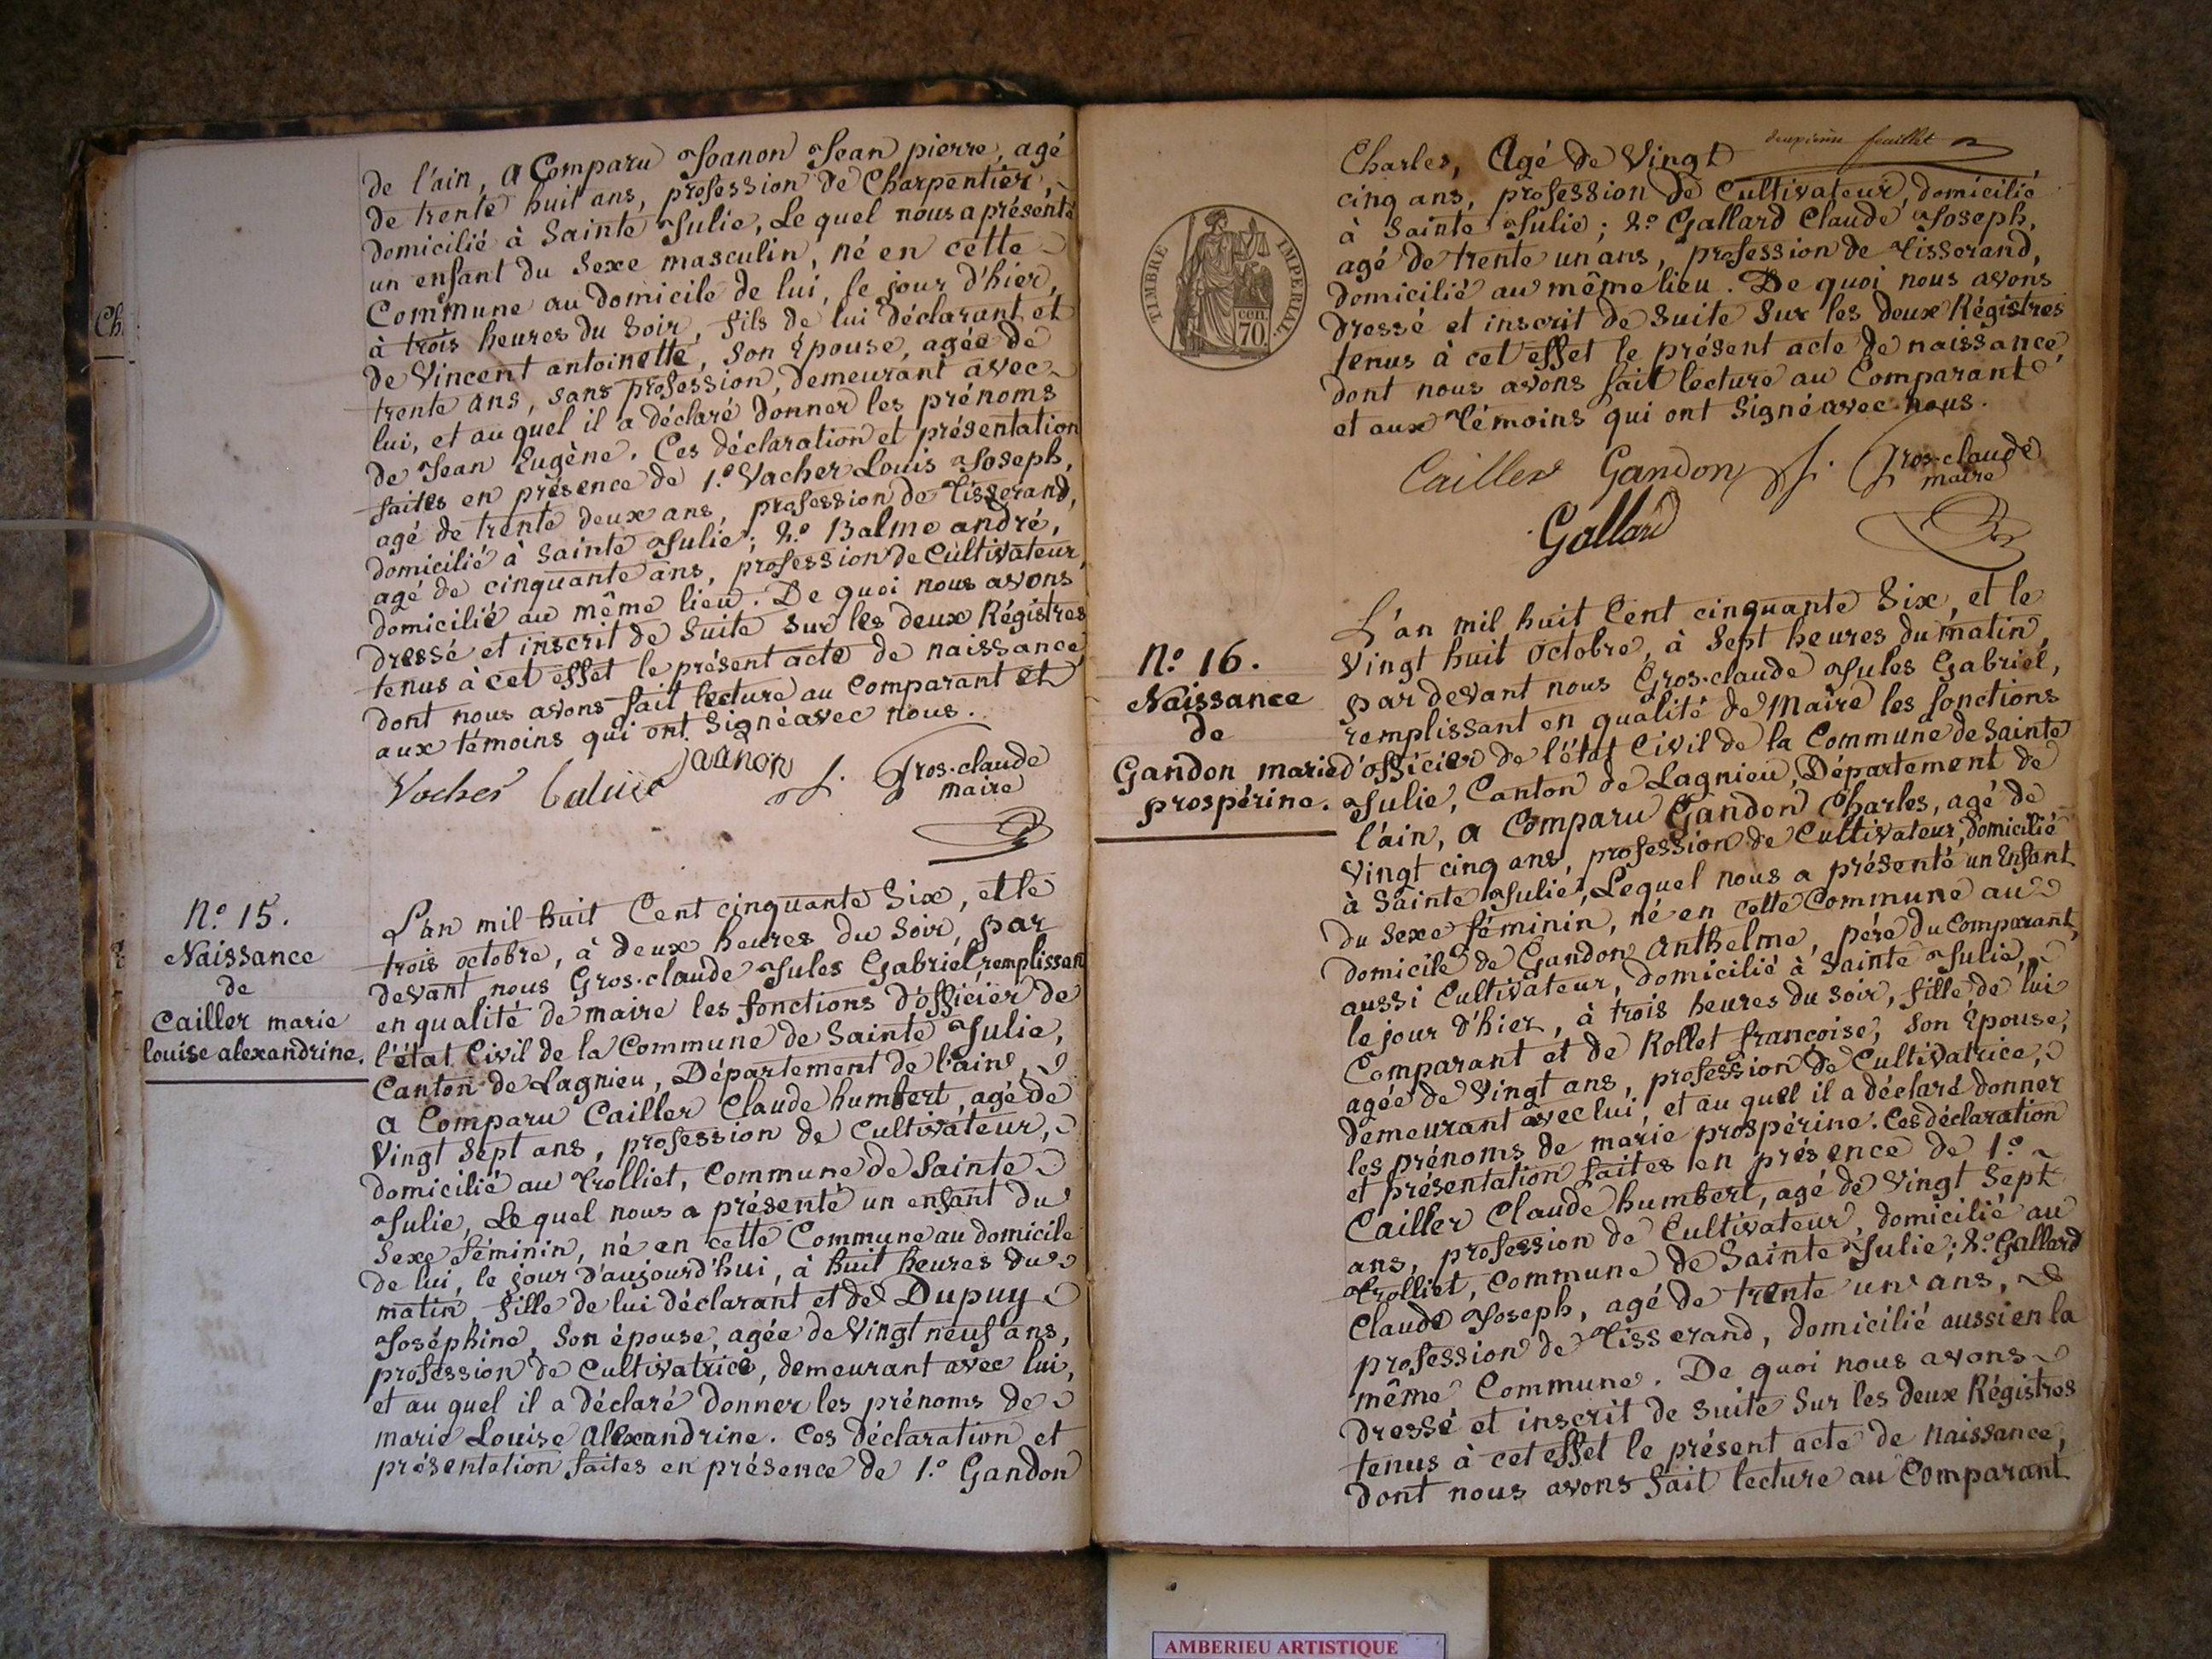 de l'ain, a Comparu Joanon Jean pierre, agé
de trente huit ans, profession de Charpentier,
domicilié à Sainte Julie, Le quel nous a présenté
un enfant du Sexe masculin, né en cette
Commune au domicile de lui, le jour d'hier,
à trois heures du Soir, fils de lui déclarant et
de Vincent antoinette, Son Epouse, agée de
trente ans, sans profession, demeurant avec
lui, et au quel il a déclaré donner les prénoms
de Jean Eugène. Ces déclaration et présentation
faites en présence de 1.º Vacher Louis Joseph,
agé de trente deux ans, profession de Tisserand,
domicilié à Sainte Julie; 2.º Balme andré,
agé de cinquante ans, profession de Cultivateur,
domicilié au même lieu. De quoi nous avons
dressé et inscrit de Suite Sur les deux Régistres
tenus à cet effet le présent acte de naissance,
dont nous avons fait lecture au Comparant et
aux témoins qui ont Signé avec nous.
Vacher Joanon J. Gros-claude
maire
Nº 15.
Naissance
de
Cailler marie
louise alexandrine.
L'an mil huit Cent cinquante Six, et le
trois octobre, à deux heures du Soir, par
devant nous Gros-claude Jules Gabriel, remplissant
en qualité de maire les fonctions d'officier de
l'état Civil de la Commune de Sainte Julie,
Canton de Lagnieu, Département de l'ain,
a Comparu Cailler Claude humbert, agé de
Vingt Sept ans, profession de Cultivateur,
domicilié au Trolliet, Commune de Sainte
Julie, Le quel nous a présenté un enfant du
Sexe féminin, né en cette Commune au domicile
de lui, le jour d'aujourd'hui, à huit heures du
matin, fille de lui déclarant et de Dupuy
Joséphine, Son épouse, agée de Vingt neuf ans,
profession de Cultivatrice, demeurant avec lui,
et au quel il a déclaré donner les prénoms de
marie Louise Alexandrine. Ces déclaration et
présentation faites en présence de 1.º Gandon
deuxième feuillet
Charles, Agé de Vingt
cinq ans, profession de Cultivateur, domicilié
à Sainte Julie; 2.º Gallard Claude Joseph,
agé de trente un ans, profession de Tisserand,
domicilié au même lieu. De quoi nous avons
dressé et inscrit de Suite Sur les deux Régistres
tenus à cet effet le présent acte de naissance,
dont nous avons fait lecture au Comparant
et aux Témoins qui ont Signé avec nous.
TIMBRE IMPERIAL
cen.
70.
Cailler Gandon J. Gros-claude
maire
Gallard
Nº 16.
Naissance
de
Gandon marie
prospérine.
L'an mil huit Cent cinquante Six, et le
Vingt huit octobre, à Sept heures du matin,
par devant nous Gros-claude Jules Gabriel,
remplissant en qualité de Maire les fonctions
d'officier de l'état Civil de la Commune de Sainte
Julie, Canton de Lagnieu, Département de
l'ain, a Comparu Gandon Charles, agé de
Vingt cinq ans, profession de Cultivateur, domicilié
à Sainte Julie, Lequel nous a présenté un Enfant
du sexe féminin, né en cette Commune au
domicile de Gandon Anthelme, père du Comparant,
aussi Cultivateur, domicilié à Sainte Julie,
le jour d'hier, à trois heures du Soir, fille de lui
Comparant et de Rollet françoise, Son Epouse,
agée de Vingt ans, profession de Cultivatrice,
demeurant avec lui, et au quel il a déclaré donner
les prénoms de marie prospérine. Ces déclaration
et présentation faites en présence de 1.º
Cailler Claude humbert, agé de Vingt Sept
ans, profession de Cultivateur, domicilié au
Trolliet, Commune de Sainte Julie; 2.º Gallard
Claude Joseph, agé de trente un ans,
profession de Tisserand, domicilié aussi en la
même Commune. De quoi nous avons
dressé et inscrit de Suite Sur les deux Régistres
tenus à cet effet le présent acte de naissance,
dont nous avons fait lecture au Comparant
AMBERIEU ARTISTIQUE